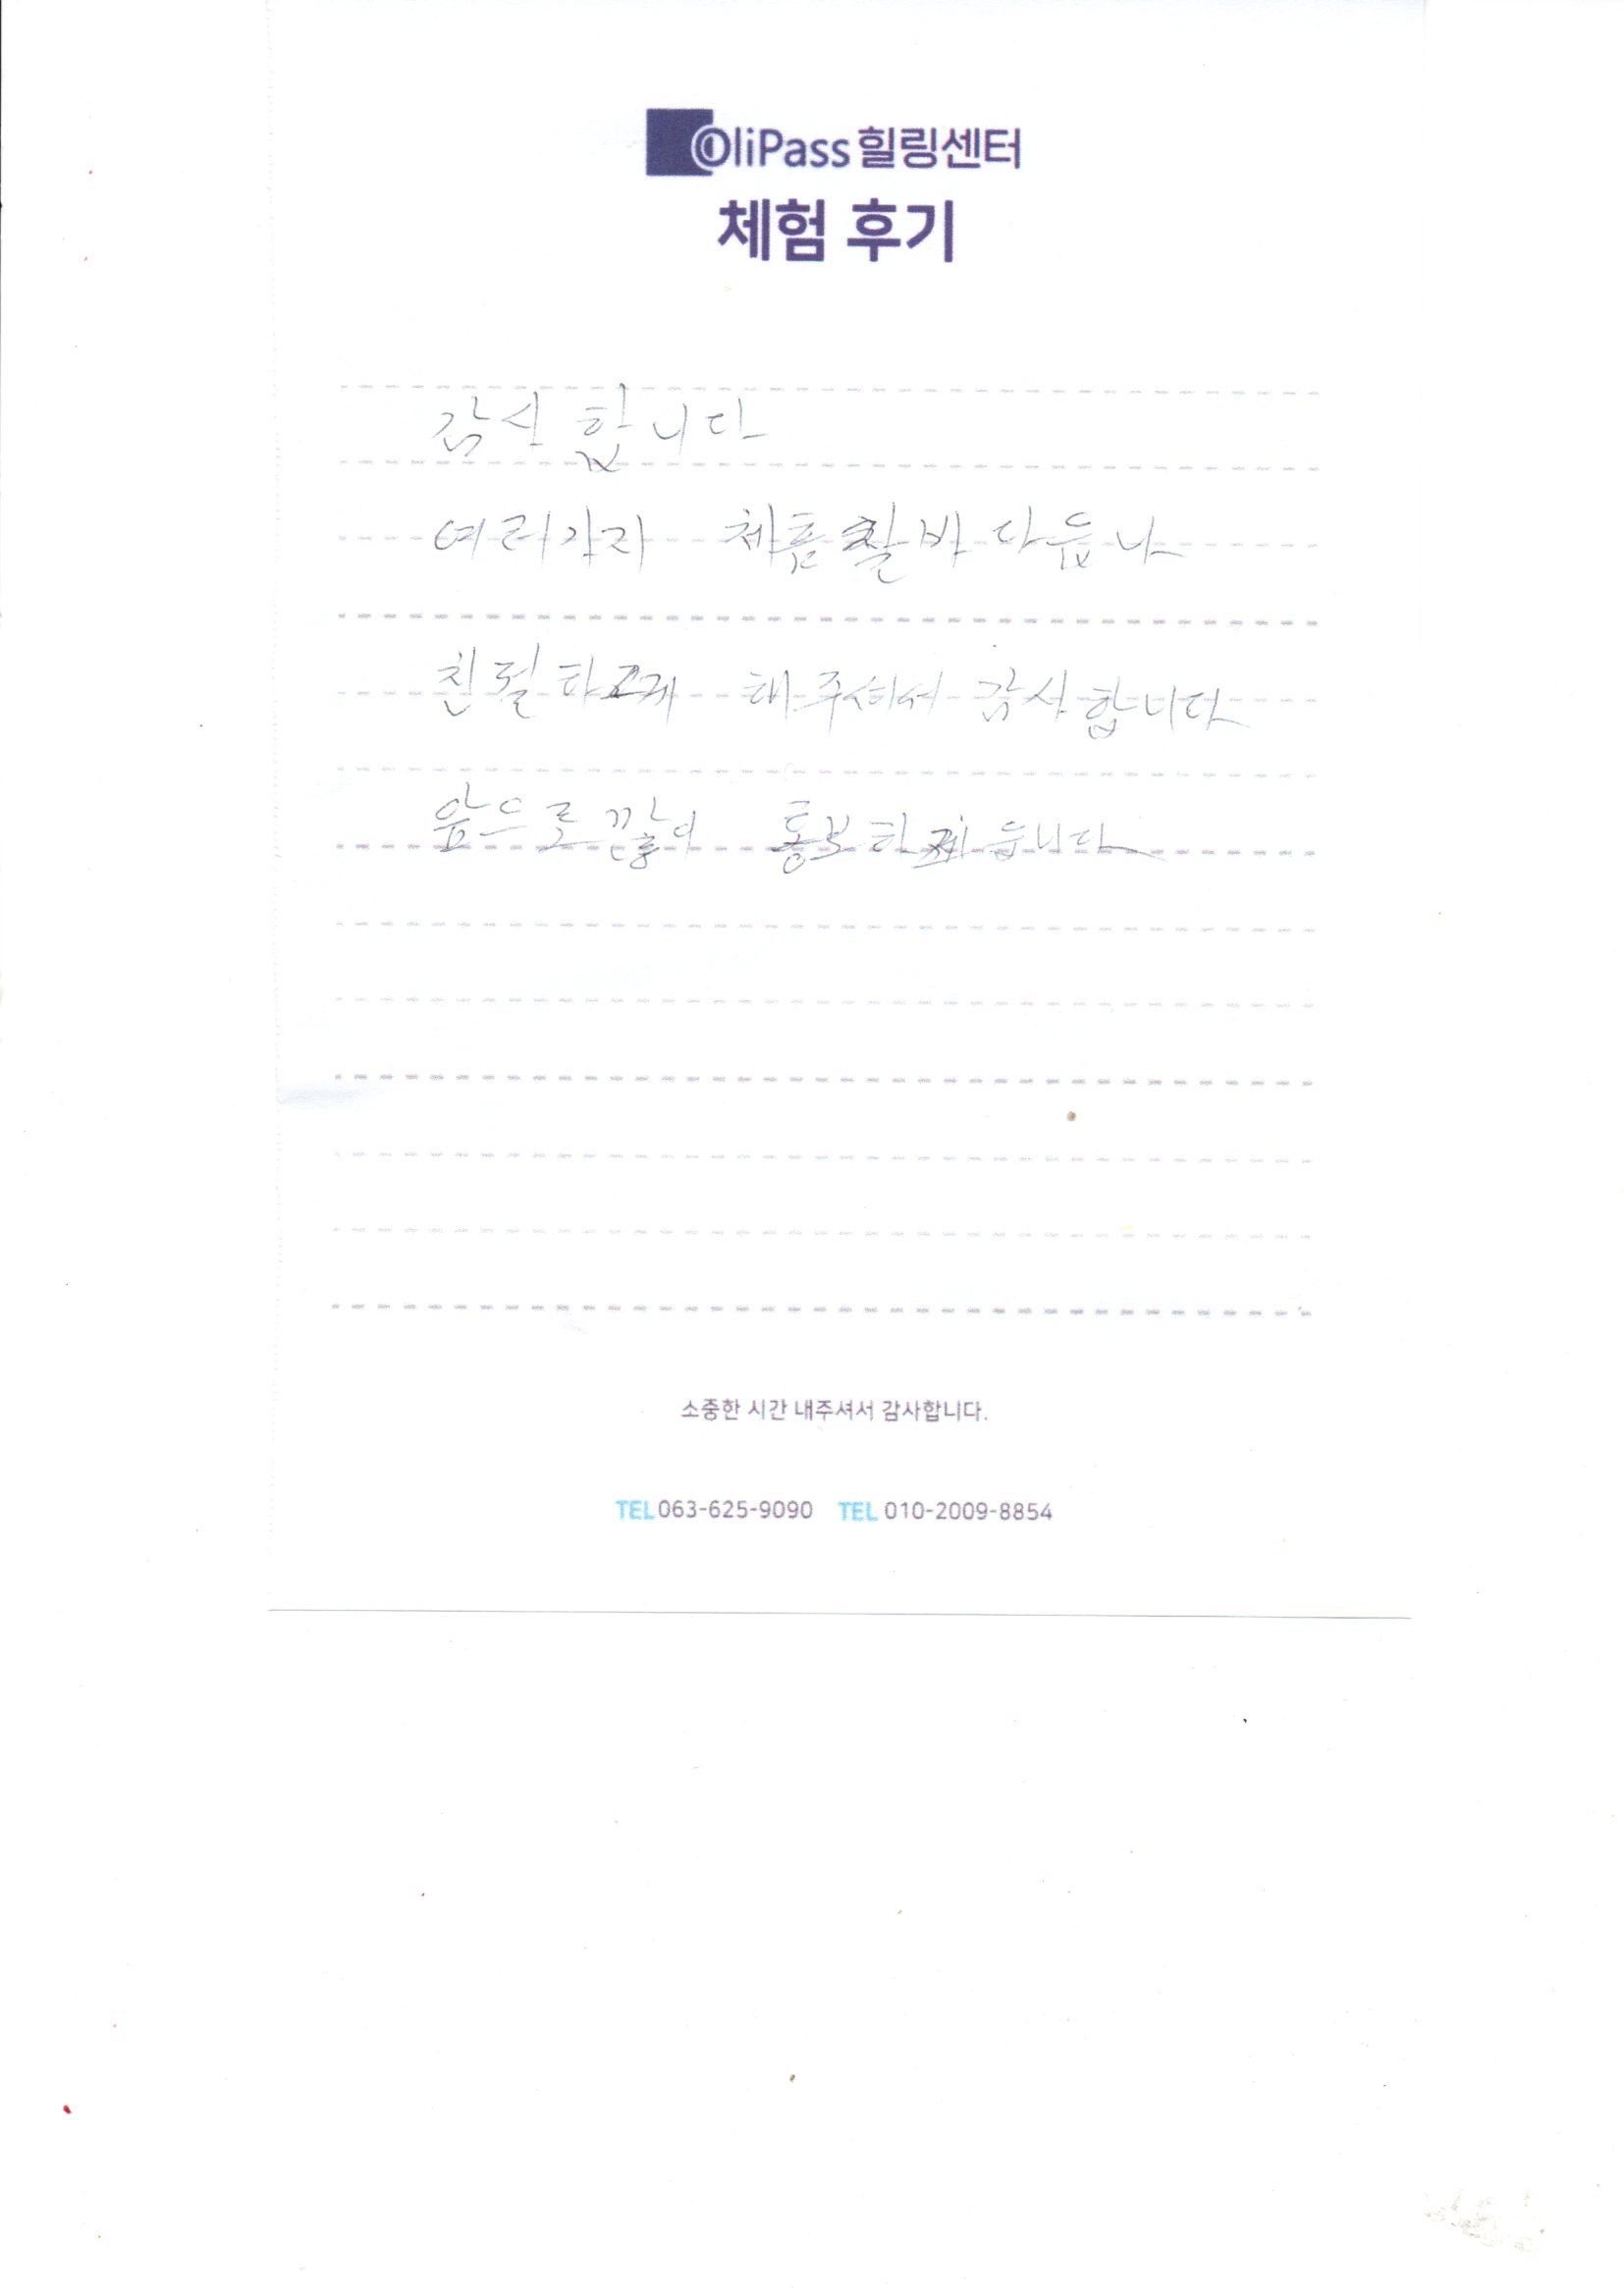 OliPass 힐링센터
체험 후기
감사 합니다
여러가지 체품 잘 바 다 읍 니
친절 하게 해 주셔서 감사 합니다
앞으로 많이 홍보 하 읍니다
소중한 시간 내주셔서 감사합니다.
TEL 063-625-9090 TEL 010-2009-8854